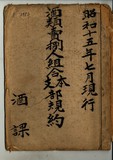 昭和十五年七月現行
酒類売捌人組合本
支部規約
酒課